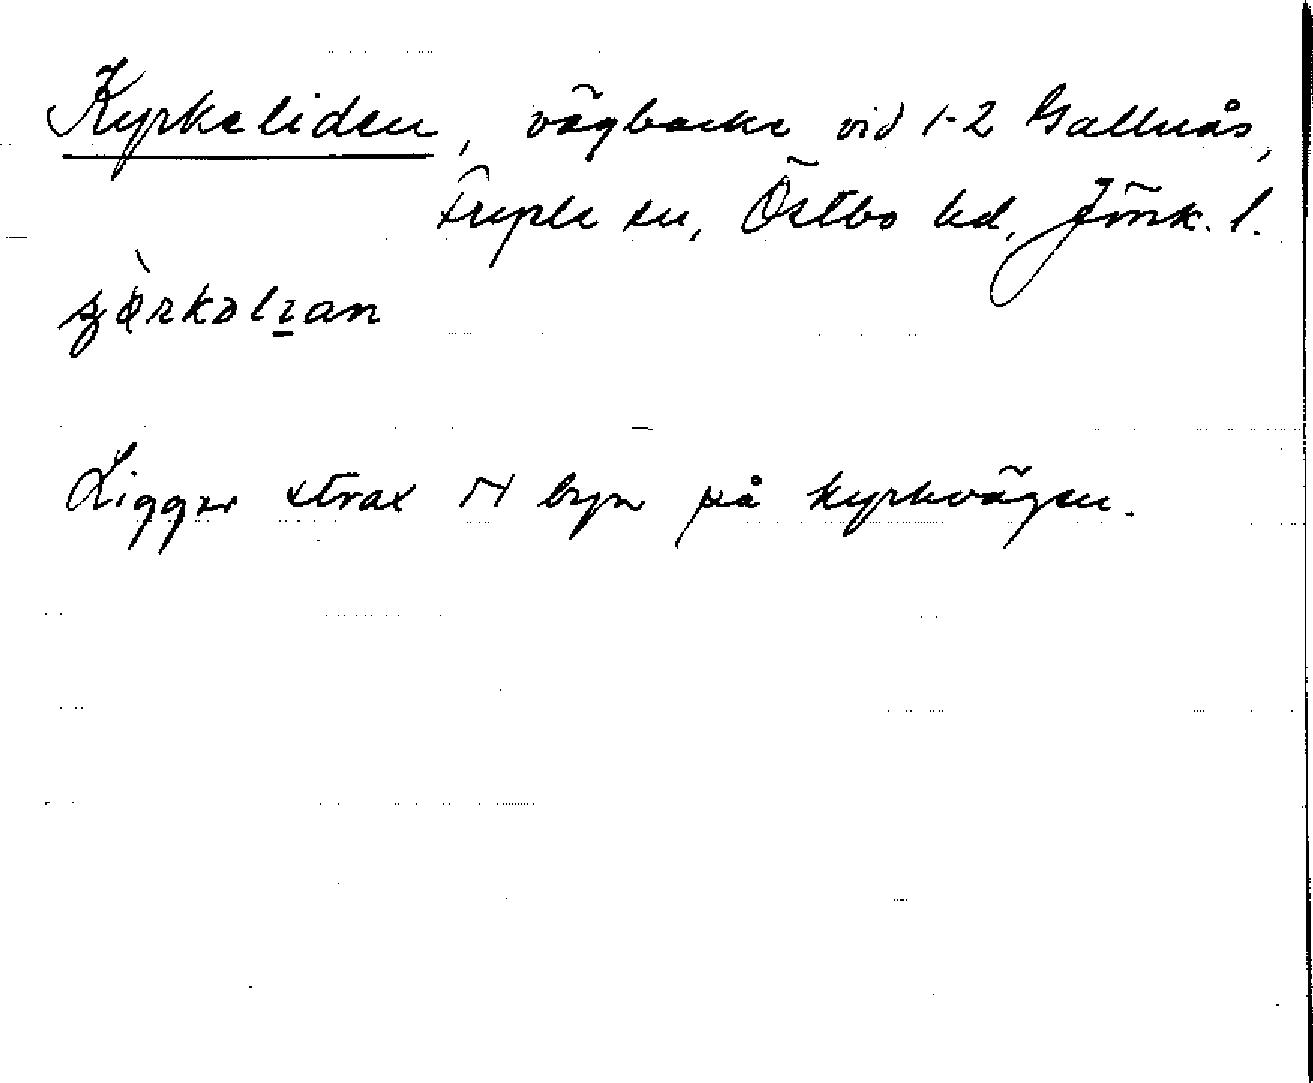 Kyrkeliden, vägbacke vid 1-2 Gallnås,
Fryele sn, Östbo hd, Jönk. l.
Ligger strax N byn på kyrkvägen.